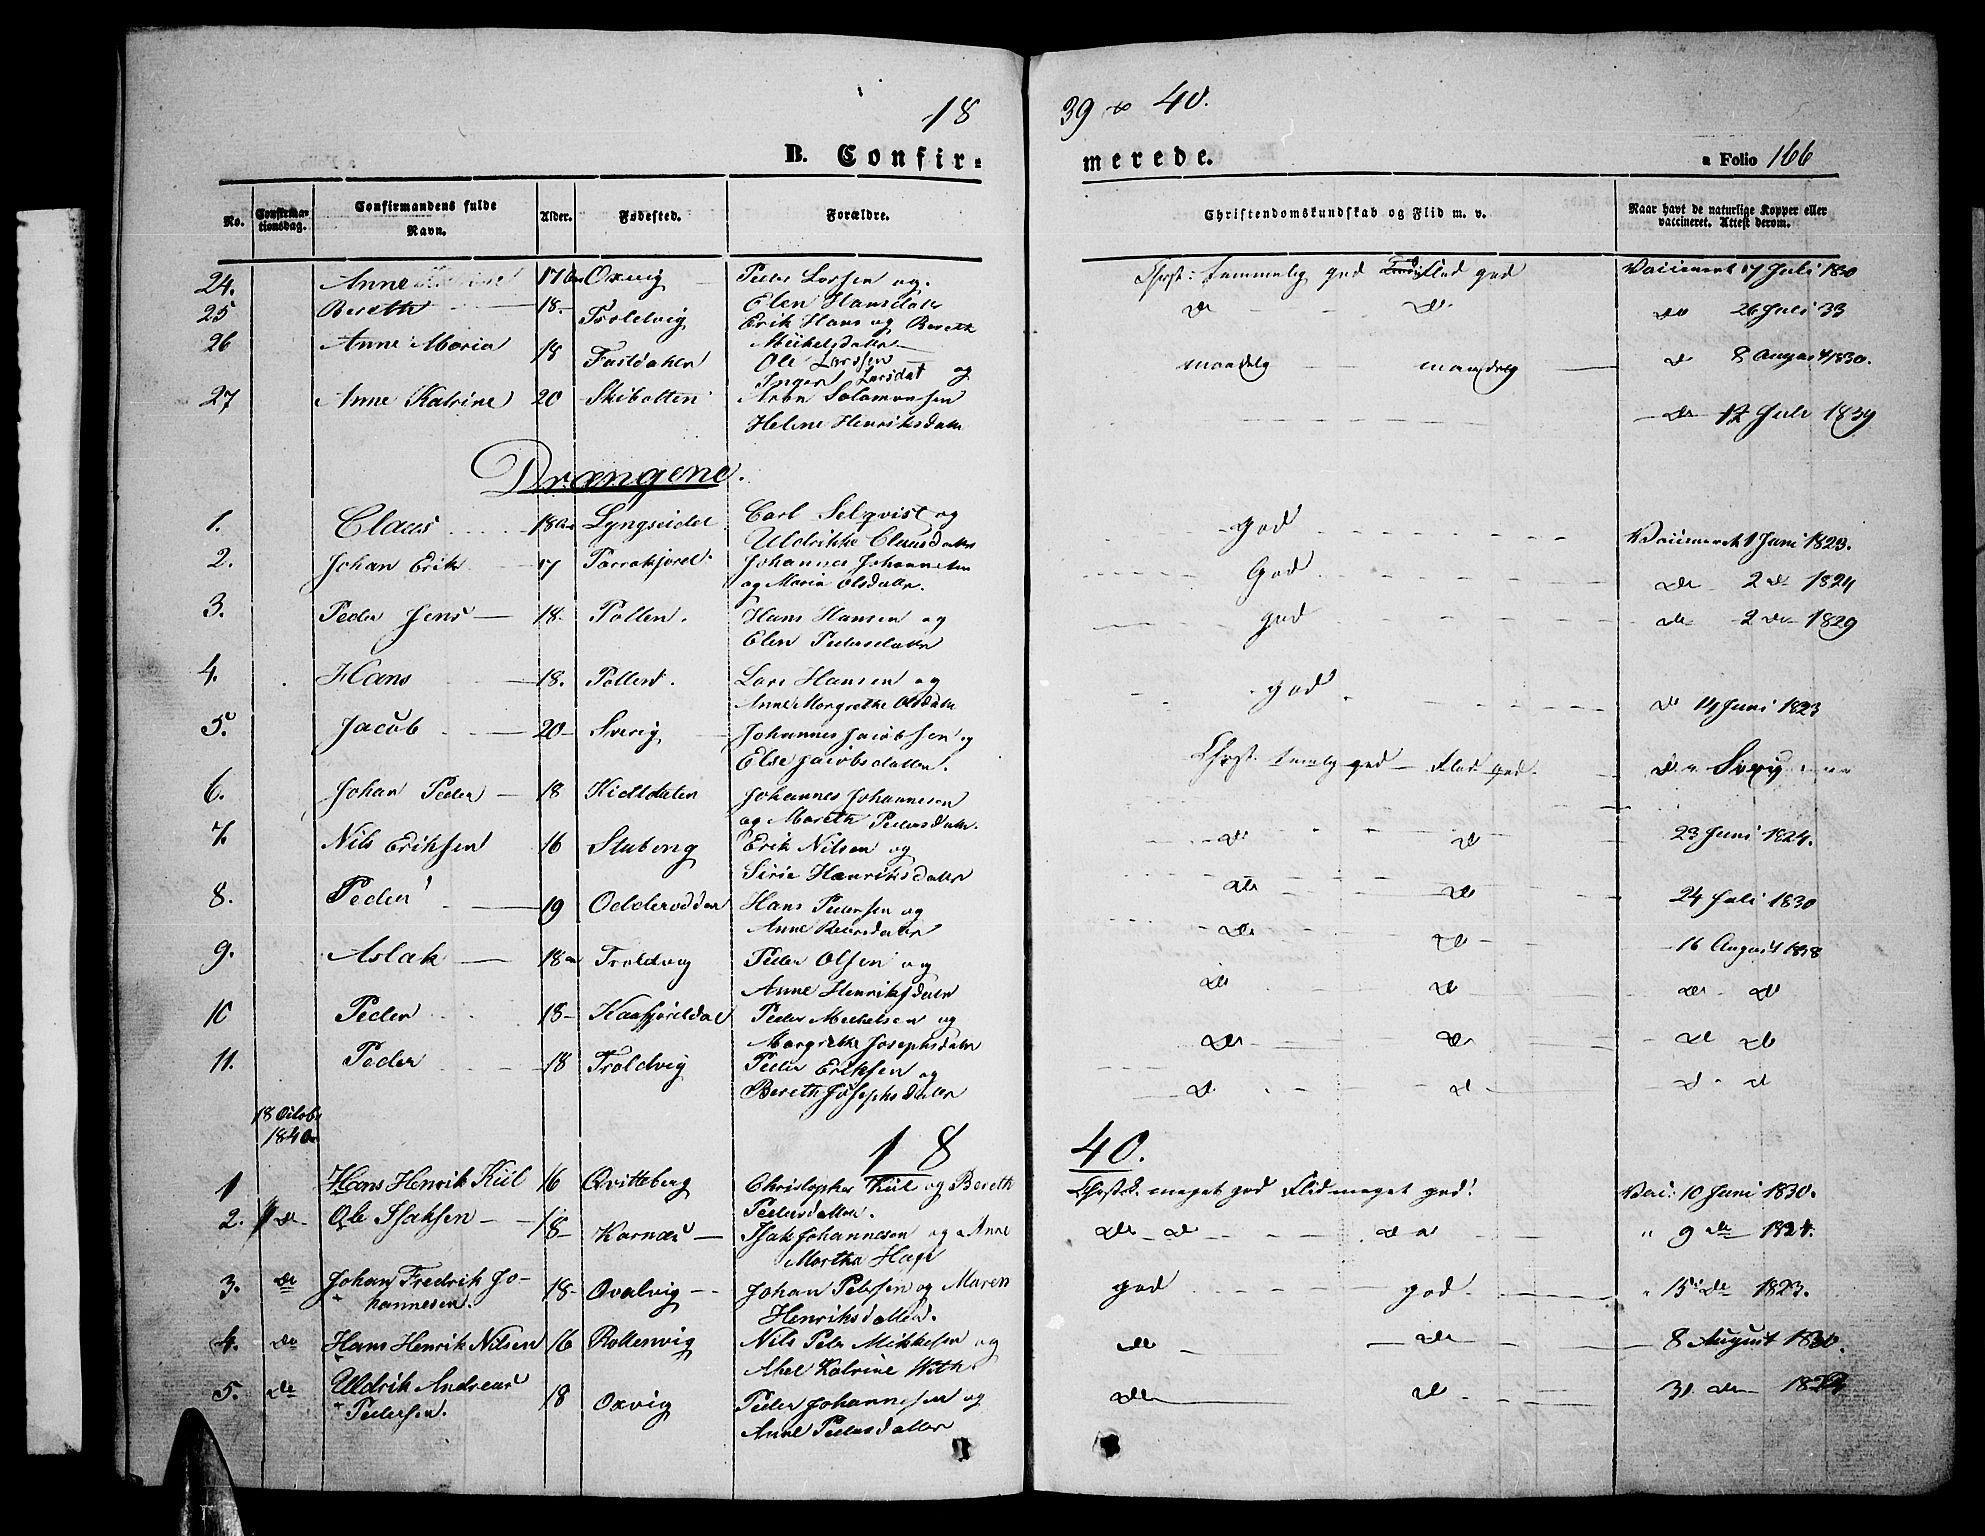 18 39 & 40.
B. Confir- merede. a Folio 166
No. Confirma-tionsdag. Confirmandens fulde Navn. Alder. Fødested. Forældre. Christendomskundskab og Flid m. v. Naar havt de naturlige Kopper eller vaccineret. Attest derom.
24. Anne 17 Oxvig Peder Larsen og Elen Hansdatter god Flid god 17 Juli 1830
25 Bereth 18. Troldvig Erik Hans og Bereth Mikelsdatter do do do 26 Juli 33
26 Anne Maria 18 Ole Larssen og Inger Larsdat maadelig maadelig do 8 August 1830.
27 Anne Katrine 20 Skibotten Aron Salamonsen Helene Henriksdatter do 12 Juli 1839
Drængene.
1. Claus 18 Lyngseidet Carl Selqvist og Uldrikke Clausdatter god 1 Juni 1823.
2. Johan Erik 17 Johannes Johannesen og Maria Olsdatter. God do 2 do 1824
3. Peder Jens 18. Pollen. Hans Hansen og Elen Pedersdatter god do 2 do 1829
4. Hans 18. Pollen. Lars Hansen og Anne Margrethe Olsdatter god do 14 Juni 1823
5. Jacob 20 Johannes Jacobsen og Else Jacobsdatter. god Flid god.
6. Johan Peder 18 Kidldalen Johannes Johannesen og Mareth Pedersdatter. do do 23 Juni 1824.
7. Nils Eriksen 16 Erik Nilsen og Siria Henriksdatter do do 24 Juli 1830
8. Peder 19 Odderodden Hans Pedersen og Anne do do 16 August 1838
9. Aslak 18 Troldvig Peder Olsen og Anne Henriksdatter do do do do
10 Peder 18 Kaafjorddal Peder Mickelsen og Margrethe Josephsdatter do do do do
11. Peder 18 Troldvig Peder Eriksen og Bereth Josephsdatter do do do do
18 Octobr 1840
18 40.
1 Hans Henrik Kiil 16 Qvitteberg Christopher Kiil og Bereth Pedersdatter. meget god Flid meget god. Vac: 10 Juni 1830.
2. do Ole Isaksen 18 Karnæs Isak Johannesen og Anne Martha Hage do do do " 9 do 1824.
3. do Johan Fredrik Johannesen. 18 Qvalvig Johan Petersen og Maren Henriksdatter. god god " 15 do 1823.
4. do Hans Henrik Nilsen 16 Rottenvig Nils Peter Mikkelsen og Abel Katrine With do do 8 August 1830.
5. do Uldrik Andreas Pedersen. 18 Oxvig Peder Johannesen og Anne Pedersdatter do do do